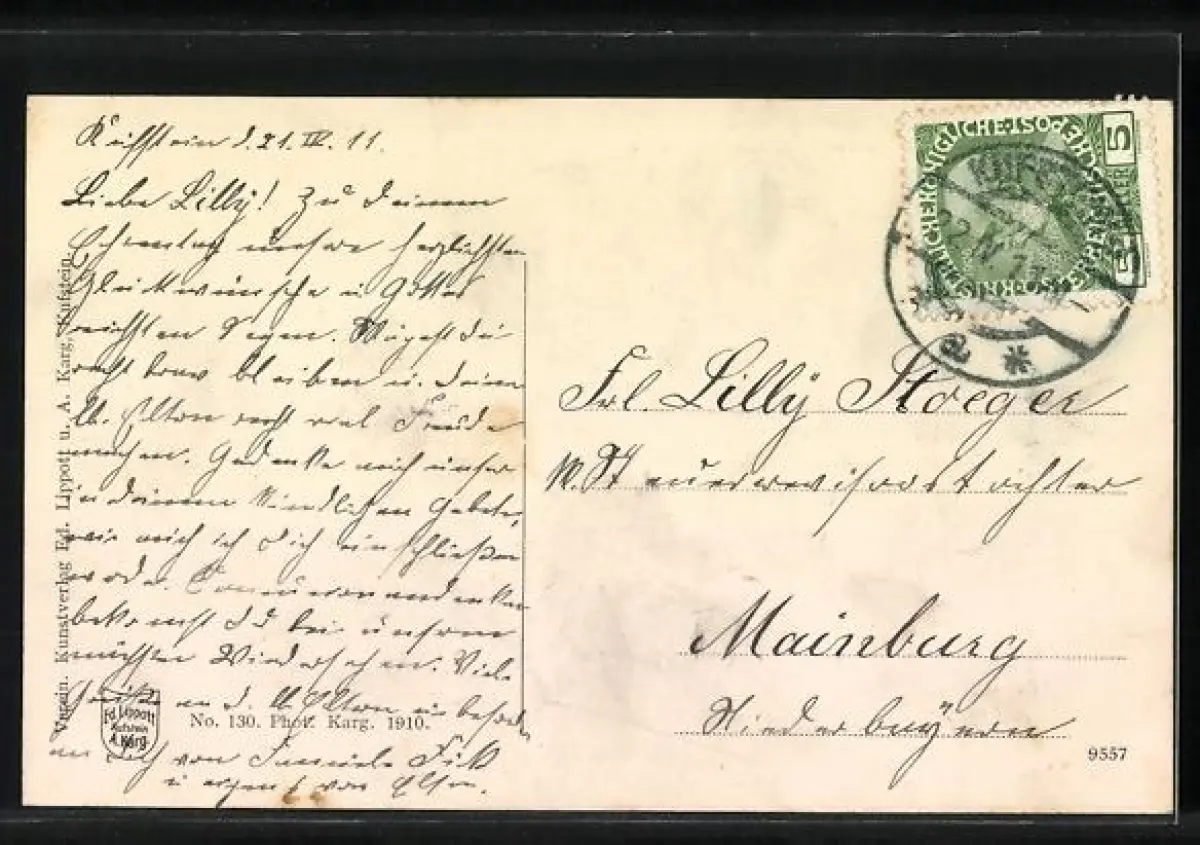 Kufstein d. 21. IV. 11.
Liebe Lilly! Zu Deinem
Ehrentag unsere herzlichsten
Glückwünsche u. Gottes
reichsten Segen. Mögest Du
recht brav bleiben u. Deinen
lb. Eltern recht viel Freude
machen. Gedenke auch unser
in Deinem kindlichen Gebete,
wie auch ich Dich einschließen
werde.
bekommst Du bei unserem
nächsten Wiedersehen. Viele
Grüße an d. lb. Eltern u. besonders
an Dich von Familie
u. von Elsa.
Verein. Kunstverlag Ed. Lippott u. A. Karg, Kufstein.
Ed. Lippott
Kufstein
A. Karg
No. 130. Phot. Karg. 1910.
KAISERLICHE KÖNIGLICHE ÖSTERREICHISCHE POST
5 HELLER 5
KUFSTEIN
a
Frl. Lilly Stoeger
Mainburg
Niederbayern
9557